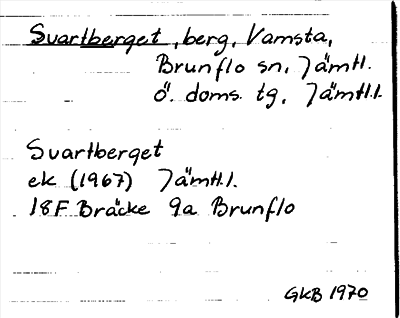 Svartberget, berg, Vamsta,
Brunflo sn, Jämtl.
Ö. doms. tg, Jämtl.l.
Svartberget
ek (1967) Jämtl.l.
18F Bräcke 9a Brunflo
GKB 1970